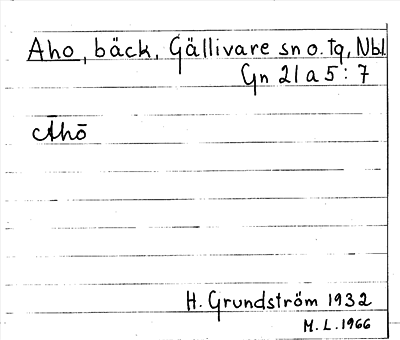 Aho, bäck, Gällivare sn o. tg, Nbl.
Gn 21 a 5 : 7
Āhō
H. Grundström 1932
M. L. 1966